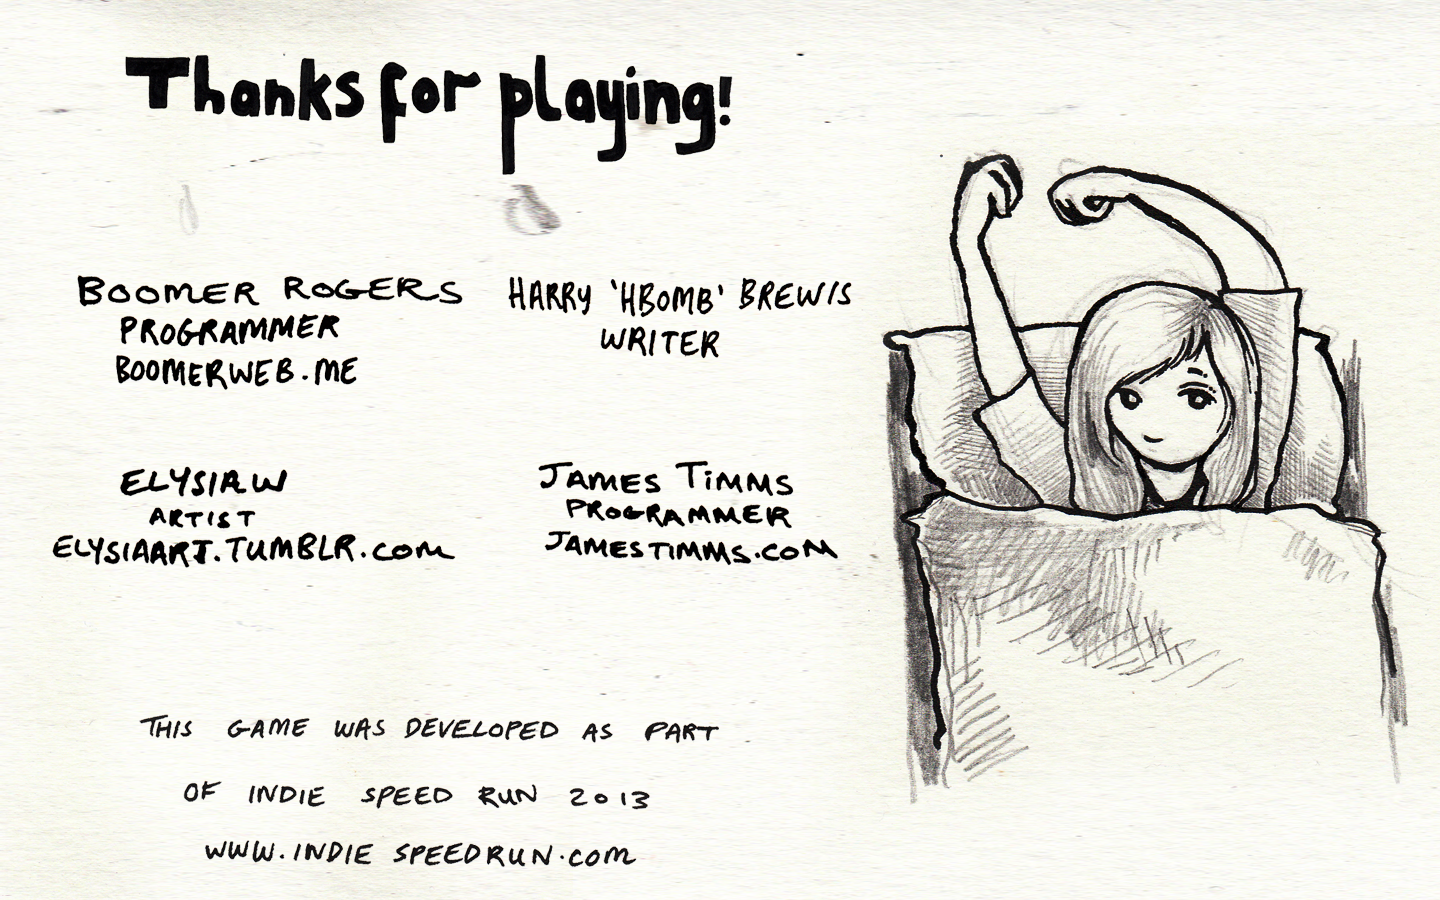 Thanks for playing!
BOOMER ROGERS
PROGRAMMER
BOOMERWEB.ME
HARRY 'HBOMB' BREWIS
WRITER
ELYSIAW
ARTIST
ELYSIAART.TUMBLR.COM
JAMES TIMMS
PROGRAMMER
JAMESTIMMS.COM
THIS GAME WAS DEVELOPED AS PART
OF INDIE SPEED RUN 2013
WWW.INDIE SPEEDRUN.COM